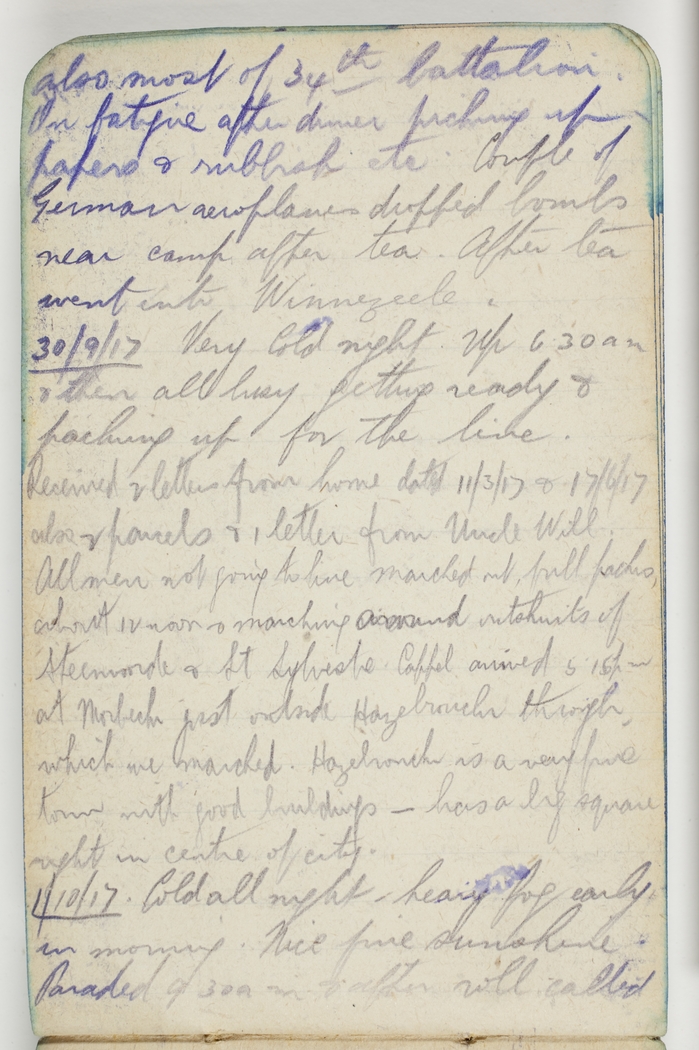 also most of 34th battalion.
On fatigue after dinner picking up
papers & rubbish etc. Couple of
German aeroplanes dropped bombs
near camp after tea. After tea
went into Winnezeele.
30/9/17 Very Cold night. Up 6 30 am
& then all busy getting ready &
packing up for the line.
Received 2 letters from home dated 11/3/17 & 17/6/17
also 2 parcels & 1 letter from Uncle Will.
All men not going to line marched out, full packs,
about 12 noon & marching around outskirts of
Steenvorde & St Sylveste Cappel arrived 5 15pm
at Morbech just outside Hazebrouche through,
which we marched. Hazebrouch is a very fine
town with good buildings — has a big square
right in centre of city.
1/10/17. Cold all night - heavy fog early
in morning. Nice fine sunshine.
Paraded 9 30 am & after roll called